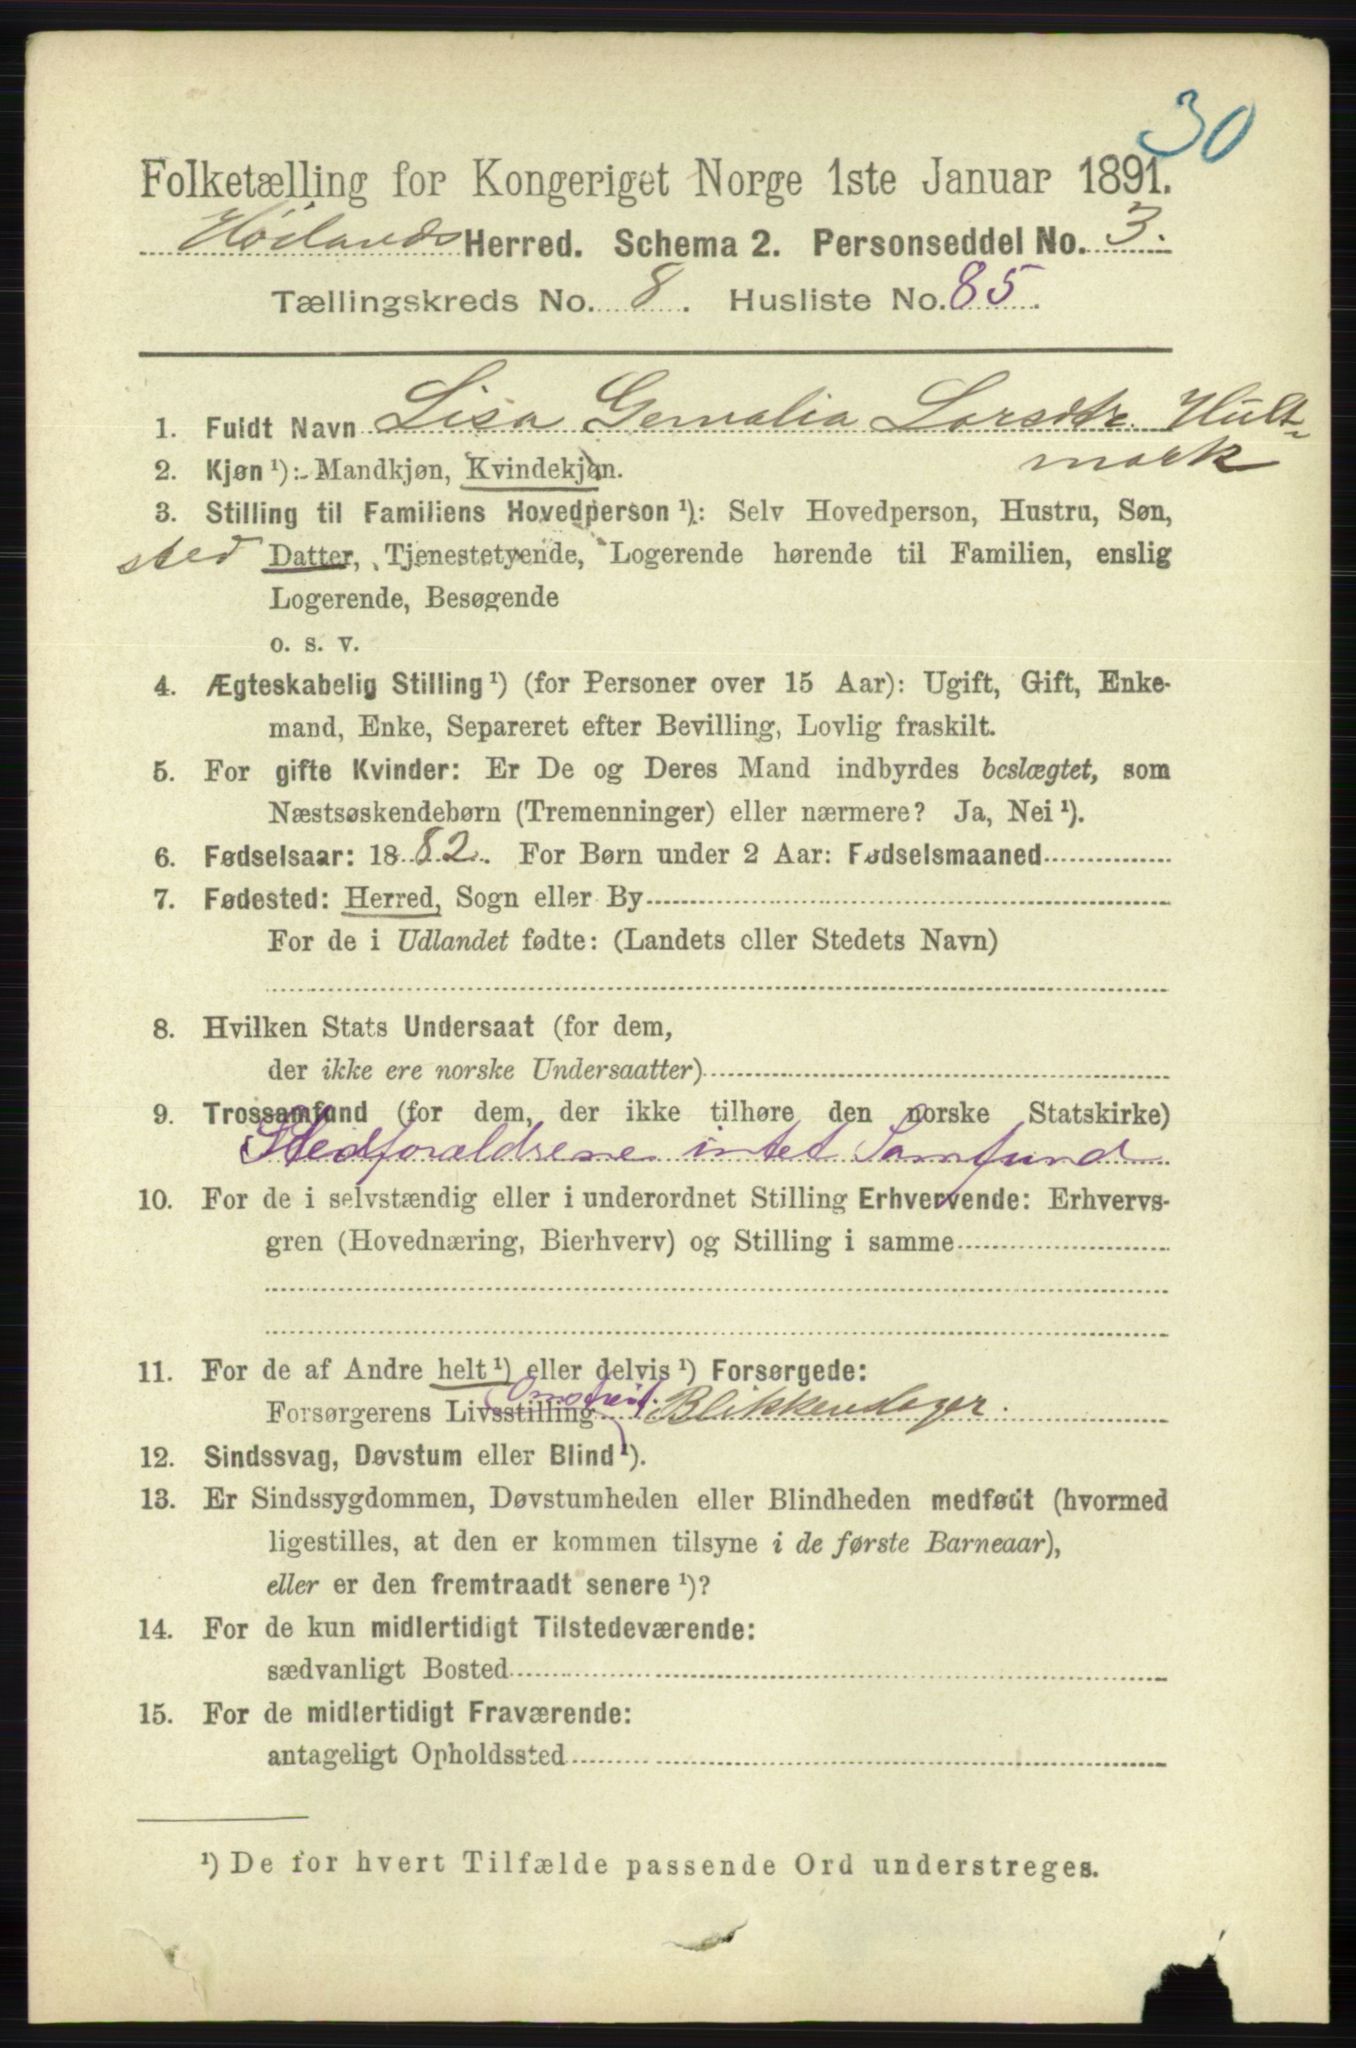 30
Folketælling for Kongeriget Norge 1ste Januar 1891.
Høilands Herred. Schema 2. Personseddel No. 3.
Tællingskreds No. 8. Husliste No. 85.
1. Fuldt Navn Lisa Gemalia Larsdtr. Hult-
mark
2. Kjøn ¹): Mandkjøn, Kvindekjøn.
3. Stilling til Familiens Hovedperson ¹): Selv Hovedperson, Hustru, Søn,
sted Datter, Tjenestetyende, Logerende hørende til Familien, enslig
Logerende, Besøgende
o. s. v.
4. Ægteskabelig Stilling ¹) (for Personer over 15 Aar): Ugift, Gift, Enke-
mand, Enke, Separeret efter Bevilling, Lovlig fraskilt.
5. For gifte Kvinder: Er De og Deres Mand indbyrdes beslægtet, som
Næstsøskendebørn (Tremenninger) eller nærmere? Ja, Nei ¹).
6. Fødselsaar: 1882. For Børn under 2 Aar: Fødselsmaaned
7. Fødested: Herred, Sogn eller By
For de i Udlandet fødte: (Landets eller Stedets Navn)
8. Hvilken Stats Undersaat (for dem,
der ikke ere norske Undersaatter)
9. Trossamfund (for dem, der ikke tilhøre den norske Statskirke)
Stedforældrene intet Samfund
10. For de i selvstændig eller i underordnet Stilling Erhvervende: Erhvervs-
gren (Hovednæring, Bierhverv) og Stilling i samme
11. For de af Andre helt ¹) eller delvis ¹) Forsørgede:
Forsørgerens Livsstilling Omstreif. Blikkenslager.
12. Sindssvag, Døvstum eller Blind ¹).
13. Er Sindssygdommen, Døvstumheden eller Blindheden medfødt (hvormed
ligestilles, at den er kommen tilsyne i de første Barneaar),
eller er den fremtraadt senere ¹)?
14. For de kun midlertidigt Tilstedeværende:
sædvanligt Bosted
15. For de midlertidigt Fraværende:
antageligt Opholdssted
¹) De for hvert Tilfælde passende Ord understreges.